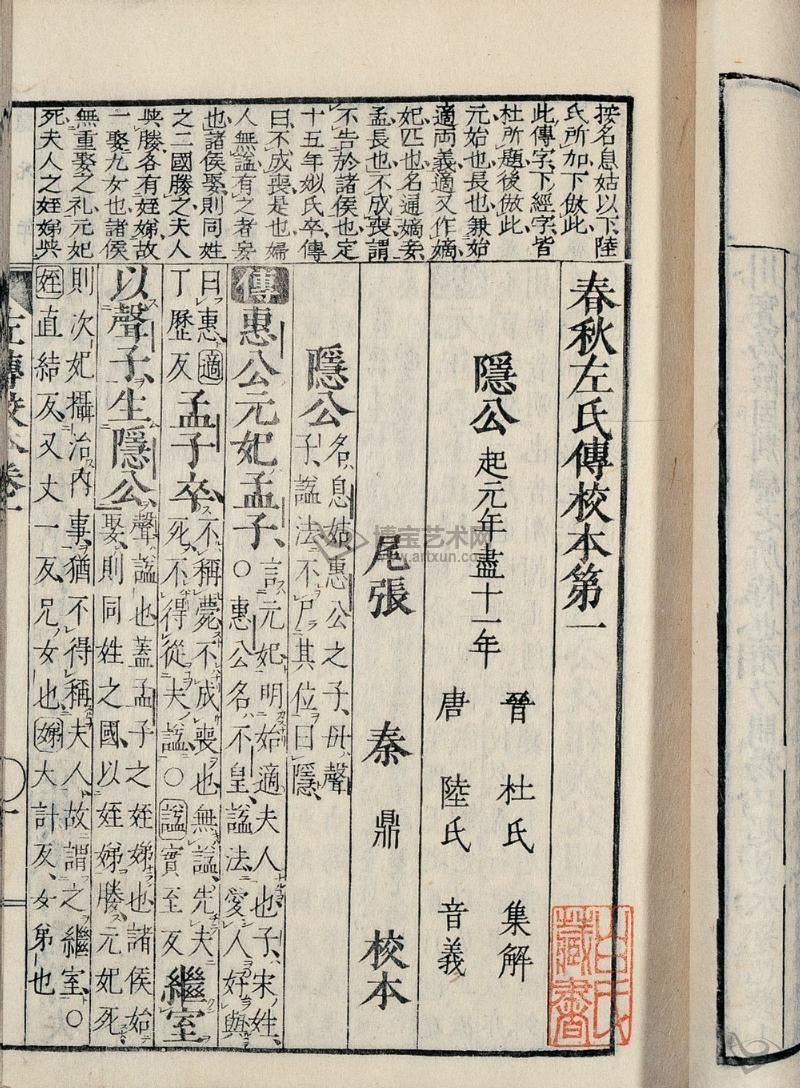 按名息姑以下陸
氏所加下倣此
此傳字下經字皆
杜所題後倣此
元始也長也兼始
適両義適又作嫡
妃匹也名通嫡妾
孟長也不成喪謂
不告於諸侯也定
十五年姒氏卒傳
曰不成喪是也婦
人無諡有之者妄
也諸侯娶則同姓
之二國媵之夫人
與媵各有姪娣故
一娶九女也諸侯
無重娶之礼元妃
死夫人之姪娣與
春秋左氏傳校本第一
隱公 起元年盡十一年
晉 杜氏 集解
唐 陸氏 音義
尾張 秦鼎 校本
隱公 名息姑惠公之子母聲
子諡法不尸其位曰隱
傳惠公元妃孟子 言元妃明始適夫人也子宋姓
○惠公名不皇諡法愛人好與
曰惠適
丁歷反
孟子卒 不稱薨不成喪也無諡先夫
死不得從夫諡○諡實至反
繼室
以聲子生隱公 聲諡也蓋孟子之姪娣也諸侯始
娶則同姓之國以姪娣媵元妃死
則次妃攝治內事猶不得稱夫人故謂之繼室○
姪直結反又丈一反兄女也娣大計反女弟也
左傳校本卷一
一
山田氏
藏書
博宝艺术网
www.artxun.com